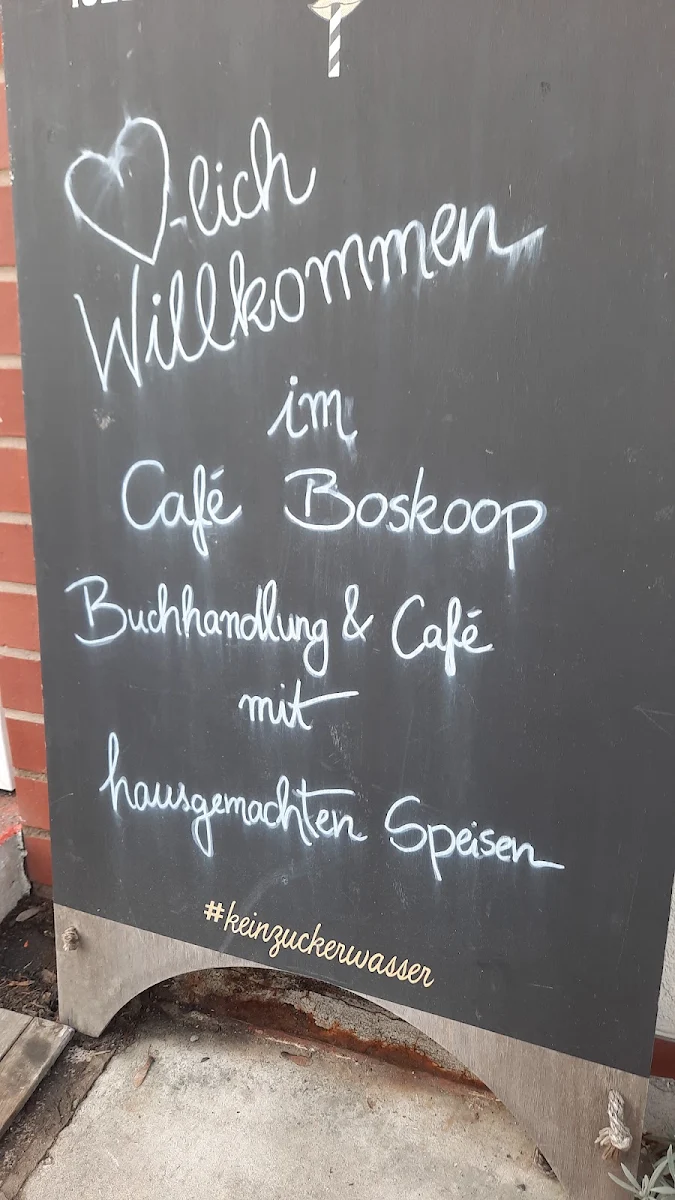 ♡-lich
Willkommen
im
Café Boskoop
Buchhandlung & Café
mit
hausgemachten Speisen
#keinzuckerwasser